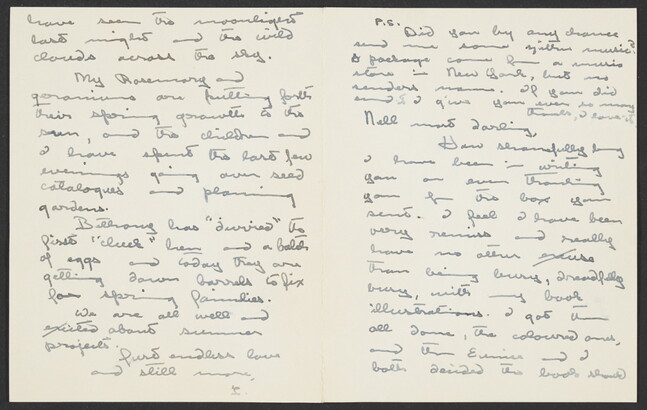 have seen the moonlight
last night and the wild
clouds across the sky.
My Rosemary and
geraniums are putting forth
their spring growths to the
sun, and the children and
I have spent the last few
evenings going over seed
catalogues and planning
gardens.
has "durried" the
first "cluck" hen and a batch
of eggs and today they are
getting down barrels to fix
for spring families.
We are all well and
excited about summer
projects.
Just endless love
and still more,
P.S.
Did you by any chance
send me some zither music?
A package came from a music
store in New York, but no
senders name. If you did
send it I give you even so many
thanks, I love it
Nell most darling,
How shamefully long
I have been in writing
you or even thanking
you for the box you
sent. I feel I have been
very remiss and really
have no other excuse
than being busy, dreadfully
busy, with my book
illustrations. I got them
all done, the coloured ones,
and then Eunice and I
both decided the book should